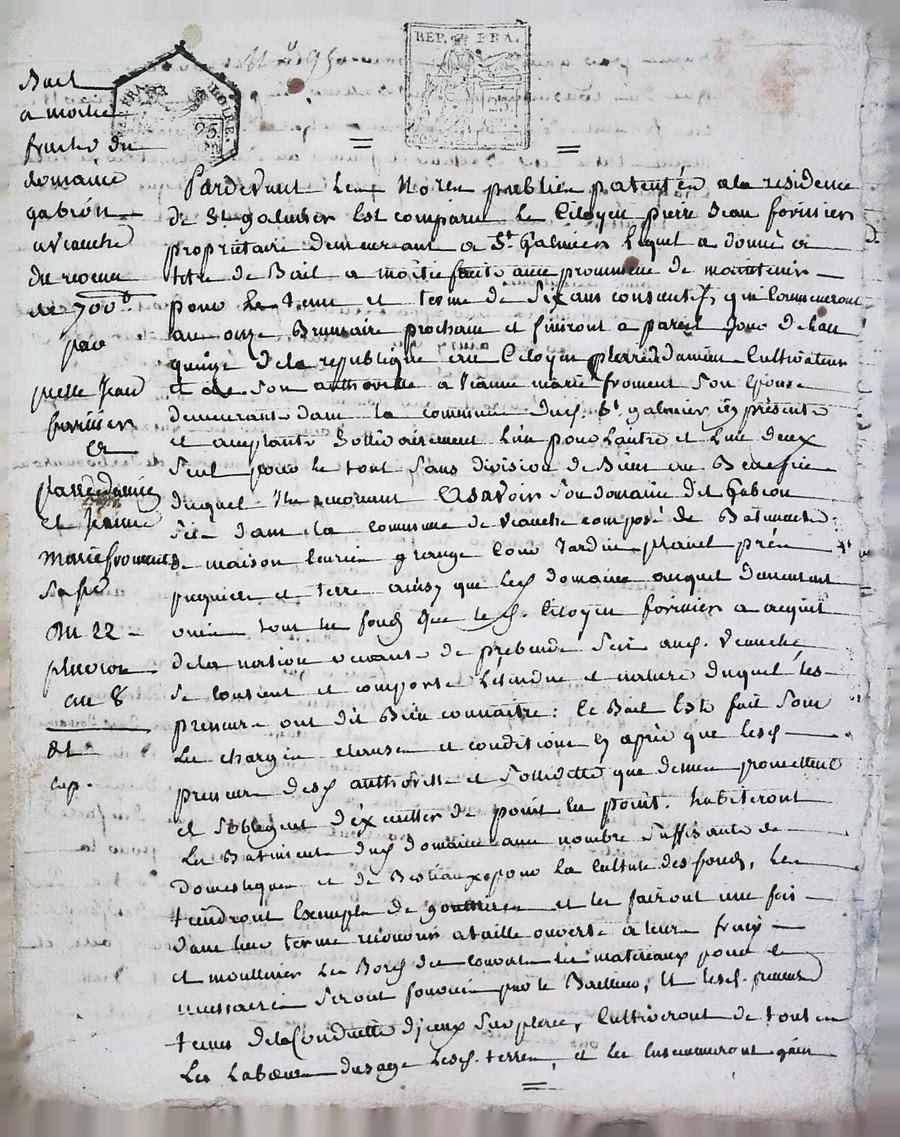 REP. FRA.
REP. FRA. LOIRE.
25
Bail
a moitié
fruits du
domaine
gabion
a veauche
du revenu
de 700
par
pierre Jean
forissier
a
pierre damien
et Jeanne
marie froment
Sa fe
Du 22
pluviose
an 8
Pardevant Le Not publie patenté a la residence
de St galmier Est comparu le Citoyen pierre Jean forissier
proprietaire demeurant a St Galmier Lequel a donné a
titre de Bail a moitié fruits avec promesse de maintenir
pour le tems et terme de Six ans consecutifs qui Commenceront
au onze Brumaire prochain et finiront a pareil Jour de lan
quinze de la republique au Citoyen pierre damien Cultivateur
et de Son authorité a Jeanne marie froment Son Epouse
demeurants dans la commune dud. St galmier ici présents
et acceptants Sollidairement L'un pour L'autre et L'un deux
Seul pour le tout Sans division de Biens au Benefice
duquel Ils renoncent Et a savoir Son domaine dit Gabion
Sis dans la commune de Veauche composé de Batiments
de maison Ecurie grange Cour Jardin pré
et terre ainsy que led. domaine
tout les fonds que le d. Citoyen forissier a acquit
de la nation venants de prebende Sis aud. Veauche
Se contient et comporte Etendue et nature duquel les
preneurs ont dit Bien connaitre: Ce Bail Est fait Sous
Les charges clauses et conditions cy après que lesd.
preneurs authorité et Sollidité que dessus promettent
et Soblegent d'éxecutter de point en point. habiteront
Les Batiments dud domaine avec nombre Suffisants de
domestiques et de Bestiaux pour la Culture des fonds, Les
tiendront Exempts de gouttieres et les fairont une fois
dans leur terme recouvrir a taille ouverte a leurs fraix
et Les Bords des couverts les materiaux pour ce
necessaires Seront fournis par le Bailleur, Et lesd. preneurs
tenus de la Conduitte d'iceux Sur place, Cultiveront de tous
Les Labours dusage Lesd. terres, et les Ensemenceront